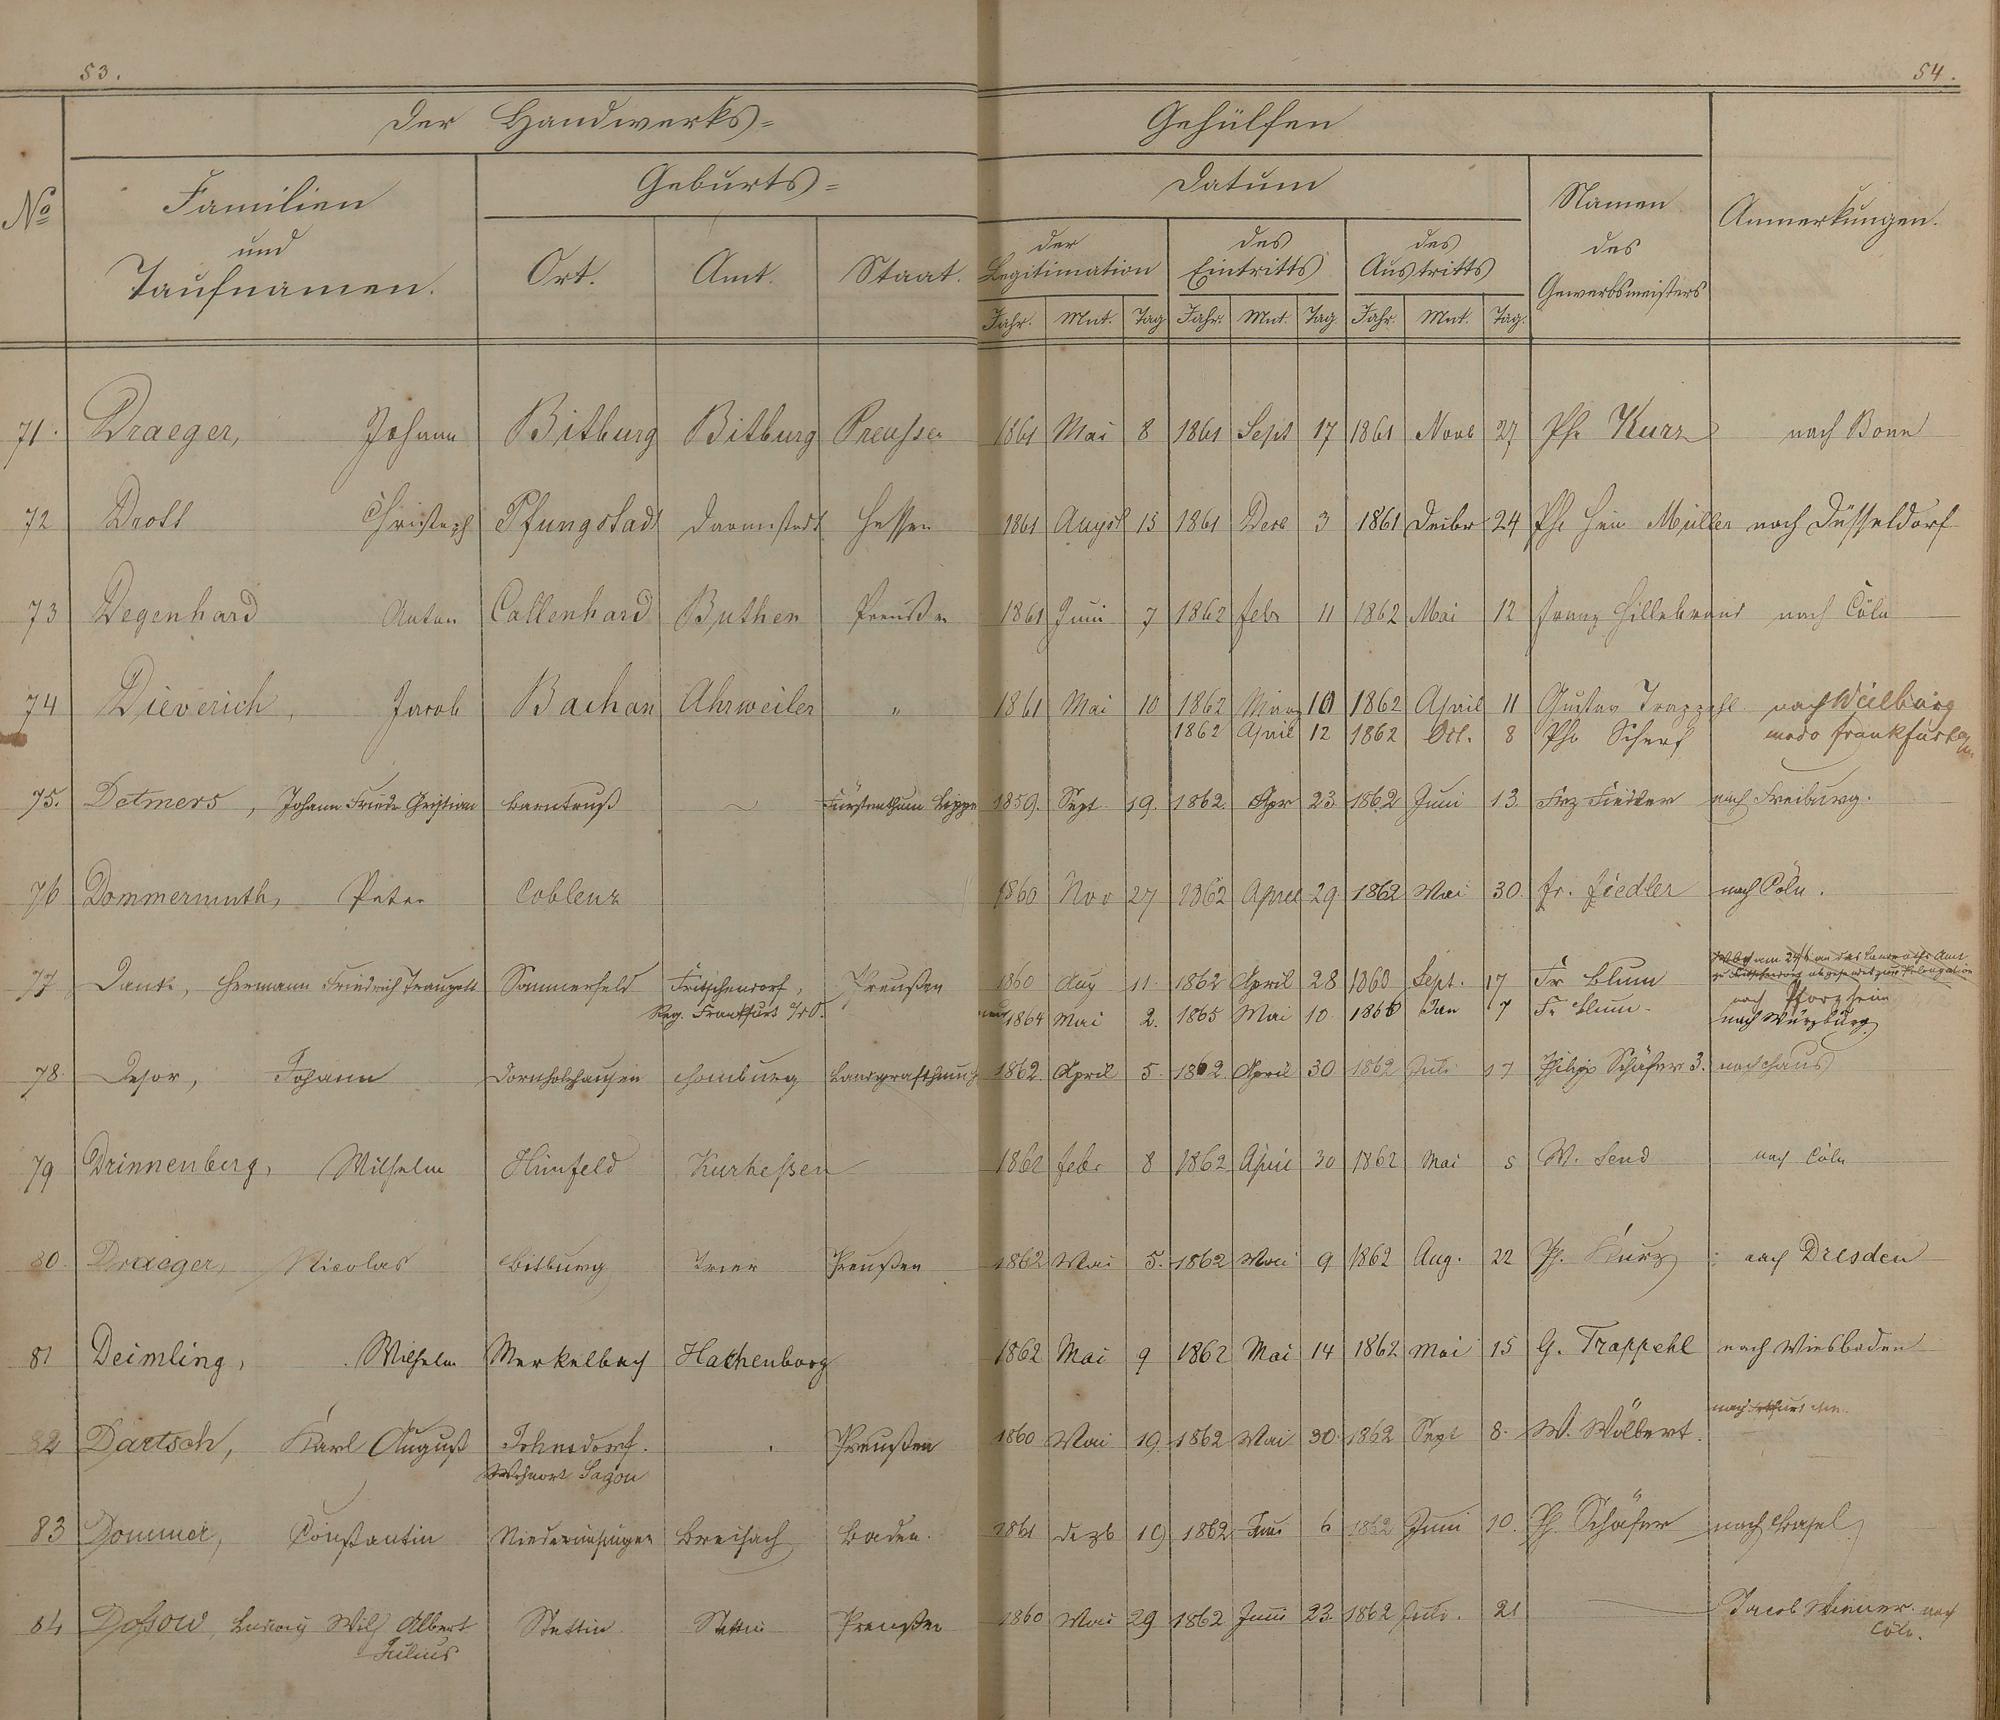 53.
54.
Der Handwerks=
Gehülfen
No
Familien
und
Taufnamen.
Geburts=
Ort.
Amt.
Staat.
Datum
der
Legitimation
des
Eintritts
des
Austritts
Jahr. Mnt. Tag Jahr. Mnt. Tag. Jahr. Mnt. Tag.
Namen
des
Gewerbsmeisters
Anmerkungen.
71. Draeger, Johann Bitburg Bitburg Preussen 1861 Mai 8 1861 Sept 17 1861 Novb 27 Ph. Kurz nach Bonn
72 Drott Christoph Pfungstadt Darmstadt Hessen 1861 Augst 15 1861 Decb 3 1861 Decbr 24 Ph. Hein Müller nach Düsseldorf
73 Degenhard Anton Callenhard Büthen Preußen 1861 Juni 7 1862 Febr 11 1862 Mai 12 Franz Hillebrand nach Cöln
74 Dieverich, Jacob Bachan Ahrweiler " 1861 Mai 10 1862 März 10 1862 April 11 Gustav Trappehl nach Weilburg
1862 April 12 1862 Oct. 8 Ph. Scherf modo Frankfurt
75. Detmers, Johann Friedr Christian Barntruß ~ Fürstenthum Lippe 1859. Sept. 19. 1862. Apr 23 1862 Juni 13. Frz Fiedler nach Freiburg.
76 Dommermuth, Peter Coblenz 1860 Nov 27 1862 April 29 1862 Mai 30. Fr. Fiedler nach Cöln.
77 Dank, Hermann Friedrich Traugott Sommerfeld Fritschendorf, Preußen 1860 Aug 11. 1862 April 28 1860 Sept. 17 Fr Blum
Reg. Frankfurt a/O. 1864 Mai 2. 1865 Mai 10. 1866 Jan 7 Fr Blum. nach Pforzheim
nach Würzburg
78. Desor, Johann Dornholzhausen Homburg Landgrafthum 1862. April 5. 1862 April 30 1862 Juli 17 Philipp Schäfer 3. nach Haus
79 Drinnenberg, Wilhelm Hünfeld Kurheßen 1862 Febr 8 1862 April 30 1862 Mai 5 W. Send nach Cöln
80. Draeger, Nicolas Bitburg Trier Preußen 1862 Mai 5. 1862 Mai 9 1862 Aug. 22 Ph. Kurz nach Dresden
81 Deimling, Wilhelm Merkelbach Hachenburg 1862 Mai 9 1862 Mai 14 1862 Mai 15 G. Trappehl nach Wiesbaden
82 Dartsch, Karl August Johnsdorf. Preußen 1860 Mai 19. 1862 Mai 30. 1862 Sept 8. W. Wölbert.
Wohnort Sagan
83 Dommer, Constantin Niederrimsingen Breisach Baden. 1861 Dezb 19 1862 Juni 6 1862 Juni 10. Ph. Schäfer nach Basel
84 Dossow, Ludwig Wilh Albert Stettin Stettin Preußen 1860 Mai 29 1862 Juni 23. 1862 Juli. 21 Jacob Wiener. nach
Julius Cöln.